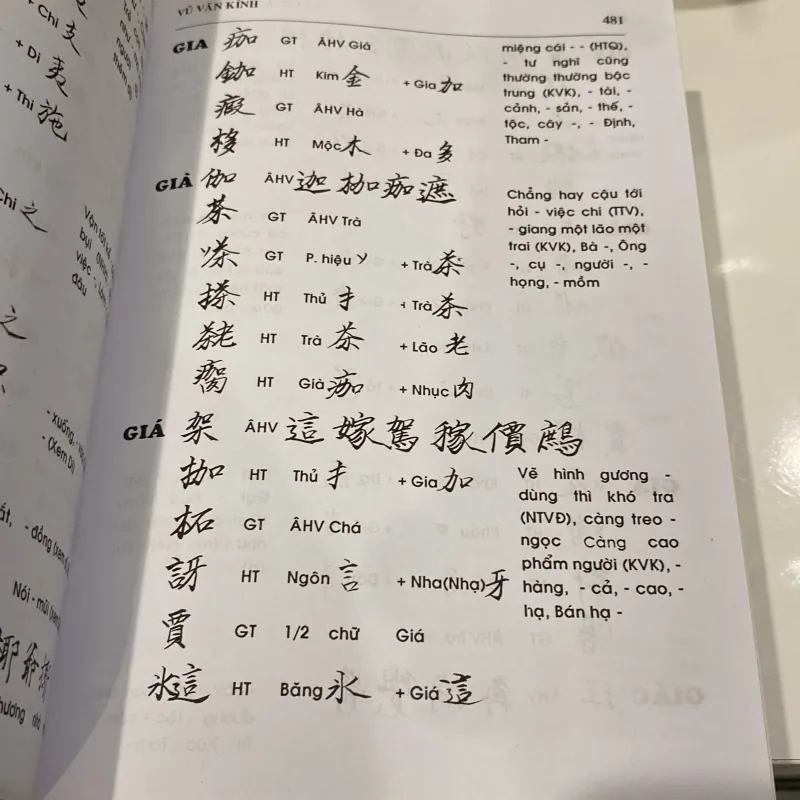 + Chi 支
+ Di 夷
+ Thi 施
Chi 之
VŨ VĂN KÍNH
481
GIA 痂 GT ÂHV Già
鉫 HT Kim 金 + Gia 加
瘕 GT ÂHV Hà
HT Mộc 木 + Đa 多
miệng cái - - (HTQ),
- tư nghĩ cũng
thường thường bậc
trung (KVK), - tài, -
cảnh, - sản, - thế, -
tộc, cây -, - Định,
Tham -
GIÀ 伽 ÂHV 迦 拁 痂 遮
茶 GT ÂHV Trà
嗏 GT P. hiệu + Trà 茶
搽 HT Thủ 扌 + Trà 茶
HT Trà 茶 + Lão 老
HT Già 痂 + Nhục 肉
Chẳng hay cậu tới
hỏi - việc chi (TTV),
- giang một lão một
trai (KVK), Bà -, Ông
-, cụ -, người -, -
họng, - mồm
GIÁ 架 ÂHV 這 嫁 駕 稼 價 鷓
拁 HT Thủ 扌 + Gia 加
柘 GT ÂHV Chá
訝 HT Ngôn 言 + Nha(Nhạ) 牙
賈 GT 1/2 chữ Giá
HT Băng 氷 + Giá 這
Vẽ hình gương -
dùng thì khó tra
(NTVĐ), càng treo -
ngọc Càng cao
phẩm người (KVK), -
hàng, - cả, - cao, -
hạ, Bán hạ -